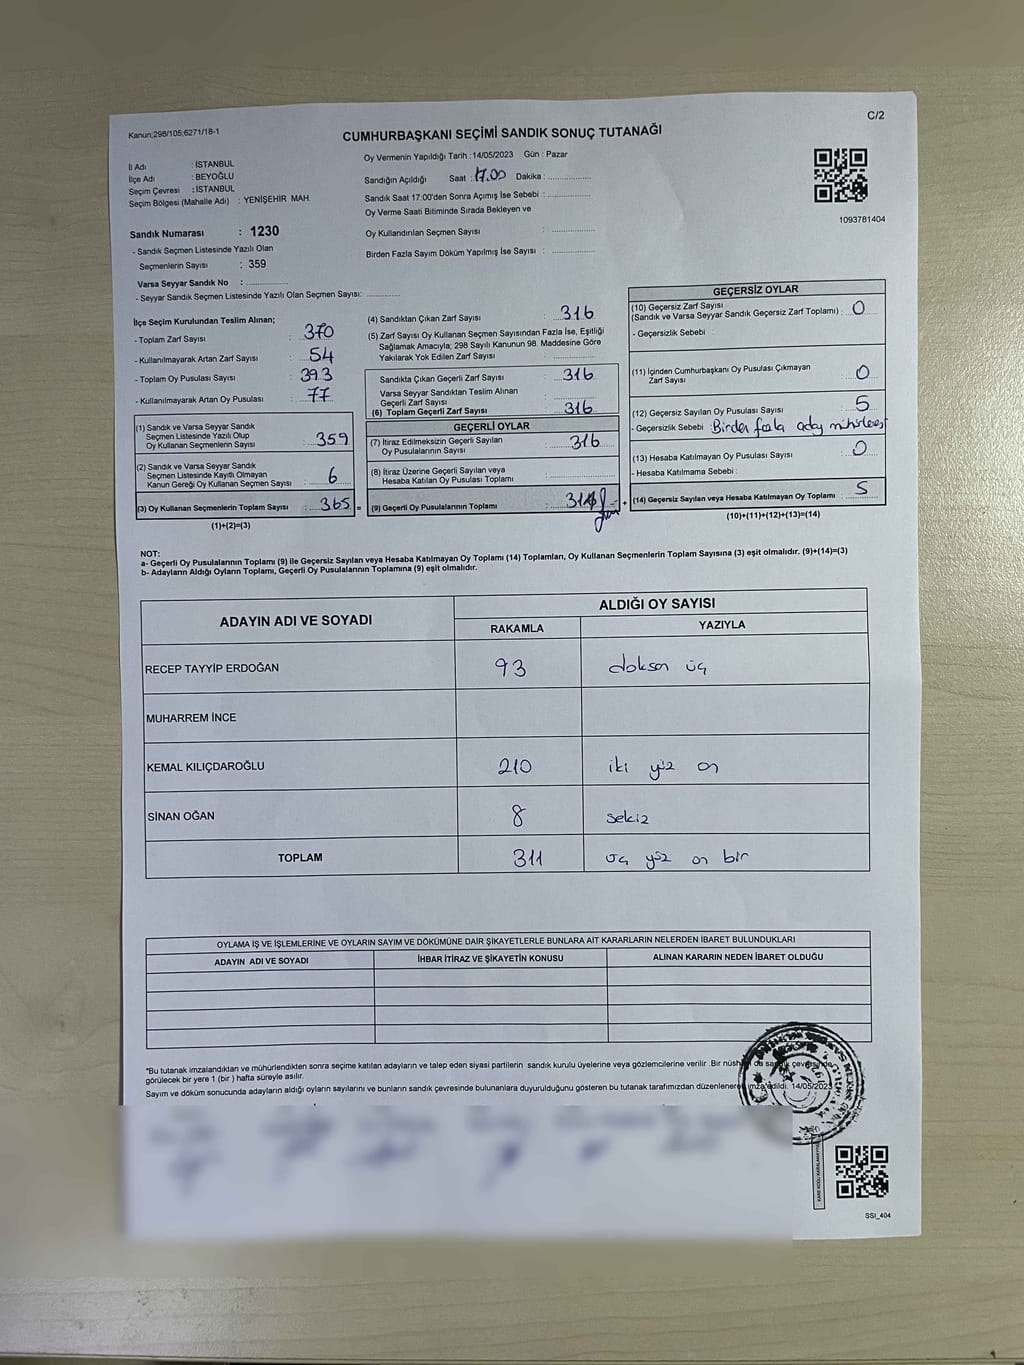 Kanun;298/105;6271/18-1
C/2
CUMHURBAŞKANI SEÇİMİ SANDIK SONUÇ TUTANAĞI
İl Adı : İSTANBUL
İlçe Adı : BEYOĞLU
Seçim Çevresi : İSTANBUL
Seçim Bölgesi (Mahalle Adı) : YENİŞEHİR MAH.
Sandık Numarası : 1230
- Sandık Seçmen Listesinde Yazılı Olan
Seçmenlerin Sayısı : 359
Varsa Seyyar Sandık No :
- Seyyar Sandık Seçmen Listesinde Yazılı Olan Seçmen Sayısı:
Oy Vermenin Yapıldığı Tarih : 14/05/2023 Gün : Pazar
Sandığın Açıldığı Saat : 17.00 Dakika :
Sandık Saat 17:00'den Sonra Açımış İse Sebebi :
Oy Verme Saati Bitiminde Sırada Bekleyen ve
Oy Kullandırılan Seçmen Sayısı :
Birden Fazla Sayım Döküm Yapılmış İse Sayısı :
1093781404
İlçe Seçim Kurulundan Teslim Alınan;
- Toplam Zarf Sayısı : 370
- Kullanılmayarak Artan Zarf Sayısı : 54
- Toplam Oy Pusulası Sayısı : 393
- Kullanılmayarak Artan Oy Pusulası : 77
(1) Sandık ve Varsa Seyyar Sandık
Seçmen Listesinde Yazılı Olup
Oy Kullanan Seçmenlerin Sayısı : 359
(2) Sandık ve Varsa Seyyar Sandık
Seçmen Listesinde Kayıtlı Olmayan
Kanun Gereği Oy Kullanan Seçmen Sayısı : 6
(3) Oy Kullanan Seçmenlerin Toplam Sayısı : 365 =
(1)+(2)=(3)
(4) Sandıktan Çıkan Zarf Sayısı : 316
(5) Zarf Sayısı Oy Kullanan Seçmen Sayısından Fazla İse, Eşitliği
Sağlamak Amacıyla; 298 Sayılı Kanunun 98. Maddesine Göre
Yakılarak Yok Edilen Zarf Sayısı :
Sandıkta Çıkan Geçerli Zarf Sayısı : 316
Varsa Seyyar Sandıktan Teslim Alınan
Geçerli Zarf Sayısı :
(6) Toplam Geçerli Zarf Sayısı : 316
GEÇERLİ OYLAR
(7) İtiraz Edilmeksizin Geçerli Sayılan
Oy Pusulalarının Sayısı : 316
(8) İtiraz Üzerine Geçerli Sayılan veya
Hesaba Katılan Oy Pusulası Toplamı :
(9) Geçerli Oy Pusulalarının Toplamı : +
GEÇERSİZ OYLAR
(10) Geçersiz Zarf Sayısı
(Sandık ve Varsa Seyyar Sandık Geçersiz Zarf Toplamı) : 0
- Geçersizlik Sebebi :
(11) İçinden Cumhurbaşkanı Oy Pusulası Çıkmayan
Zarf Sayısı : 0
(12) Geçersiz Sayılan Oy Pusulası Sayısı : 5
- Geçersizlik Sebebi : Birden fazla aday
(13) Hesaba Katılmayan Oy Pusulası Sayısı : 0
- Hesaba Katılmama Sebebi :
(14) Geçersiz Sayılan veya Hesaba Katılmayan Oy Toplamı : 5
(10)+(11)+(12)+(13)=(14)
NOT:
a- Geçerli Oy Pusulalarının Toplamı (9) ile Geçersiz Sayılan veya Hesaba Katılmayan Oy Toplamı (14) Toplamları, Oy Kullanan Seçmenlerin Toplam Sayısına (3) eşit olmalıdır. (9)+(14)=(3)
b- Adayların Aldığı Oyların Toplamı, Geçerli Oy Pusulalarının Toplamına (9) eşit olmalıdır.
ADAYIN ADI VE SOYADI
ALDIĞI OY SAYISI
RAKAMLA YAZIYLA
RECEP TAYYİP ERDOĞAN 93 doksan üç
MUHARREM İNCE
KEMAL KILIÇDAROĞLU 210 iki yüz on
SİNAN OĞAN 8 sekiz
TOPLAM 311 üç yüz on bir
OYLAMA İŞ VE İŞLEMLERİNE VE OYLARIN SAYIM VE DÖKÜMÜNE DAİR ŞİKAYETLERLE BUNLARA AİT KARARLARIN NELERDEN İBARET BULUNDUKLARI
ADAYIN ADI VE SOYADI İHBAR İTİRAZ VE ŞİKAYETİN KONUSU ALINAN KARARIN NEDEN İBARET OLDUĞU
*Bu tutanak imzalandıktan ve mühürlendikten sonra seçime katılan adayların ve talep eden siyasi partilerin sandık kurulu üyelerine veya gözlemcilerine verilir. Bir nüshası da sandık çevresinde
görülecek bir yere 1 (bir ) hafta süreyle asılır.
Sayım ve döküm sonucunda adayların aldığı oyların sayılarını ve bunların sandık çevresinde bulunanlara duyurulduğunu gösteren bu tutanak tarafımızdan düzenlenerek imza edildi. 14/05/2023
SSI_404